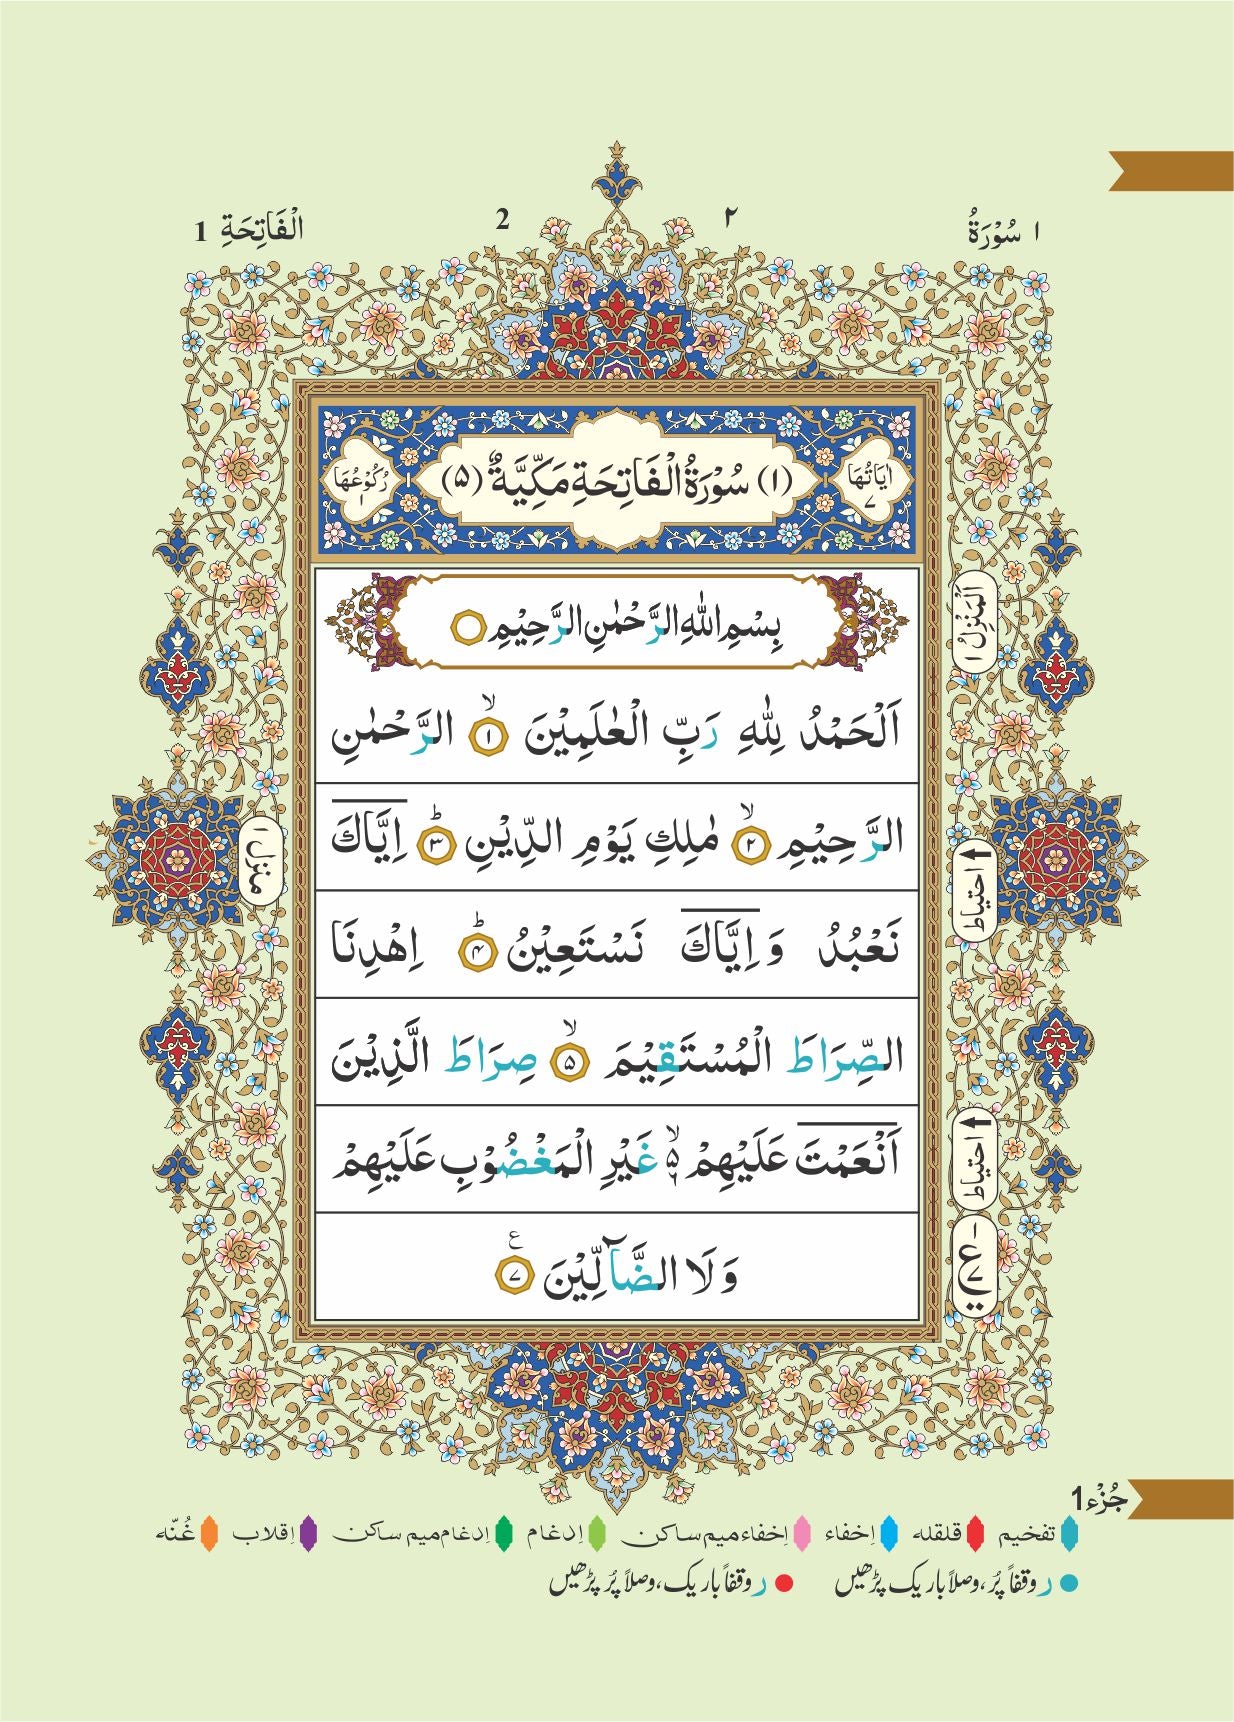 ١ سُوْرَةُ ٢ 2 الْفَاتِحَةِ 1
اٰيَاتُهَا ٧ (١) سُوْرَةُ الْفَاتِحَةِ مَكِّيَّةٌ (٥) رُكُوْعُهَا ١
بِسْمِ اللّٰهِ الرَّحْمٰنِ الرَّحِيْمِ
اَلْحَمْدُ لِلّٰهِ رَبِّ الْعٰلَمِيْنَ ۙ ١ الرَّحْمٰنِ
الرَّحِيْمِ ۙ ٢ مٰلِكِ يَوْمِ الدِّيْنِ ؕ ٣ اِيَّاكَ
نَعْبُدُ وَ اِيَّاكَ نَسْتَعِيْنُ ؕ ٤ اِهْدِنَا
الصِّرَاطَ الْمُسْتَقِيْمَ ۙ ٥ صِرَاطَ الَّذِيْنَ
اَنْعَمْتَ عَلَيْهِمْ ۙ ٦ غَيْرِ الْمَغْضُوْبِ عَلَيْهِمْ
وَ لَا الضَّآلِّيْنَ ع ٧
اَلْمَنْزِلُ ١
احتیاط
احتیاط
ع
منزل ١
جُزْء 1
تفخیم قلقله اِخفاء اِخفاء میم ساکن اِدغام اِدغام میم ساکن اِقلاب غُنّه
ر وقفاً پُر، وصلاً باریک پڑھیں ر وقفاً باریک، وصلاً پُر پڑھیں